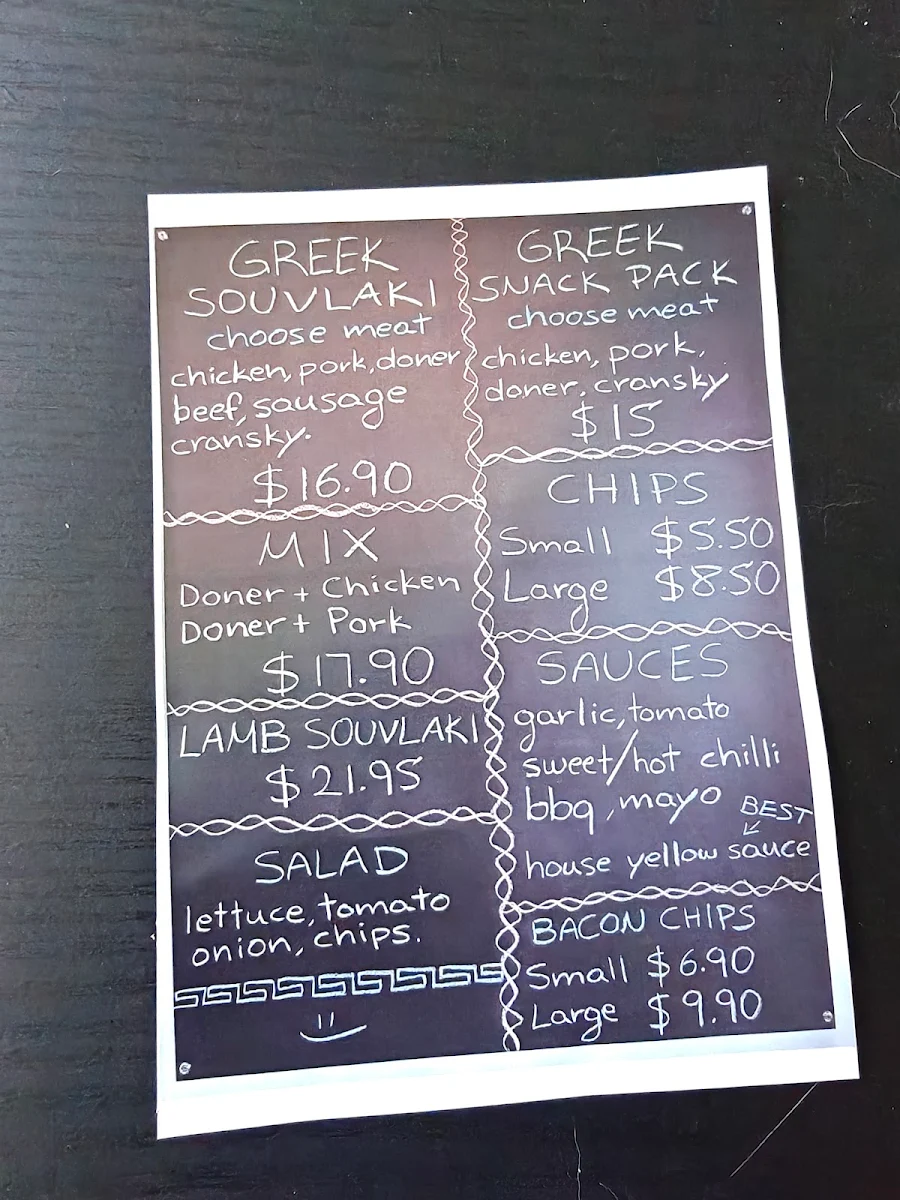 GREEK
SOUVLAKI
choose meat
chicken, pork, doner
beef, sausage
cransky.
$16.90
MIX
Doner + Chicken
Doner + Pork
$17.90
LAMB SOUVLAKI
$21.95
SALAD
lettuce, tomato
onion, chips.
GREEK
SNACK PACK
choose meat
chicken, pork,
doner, cransky
$15
CHIPS
Small $5.50
Large $8.50
SAUCES
garlic, tomato
sweet/hot chilli
bbq, mayo
BEST
house yellow sauce
BACON CHIPS
Small $6.90
Large $9.90